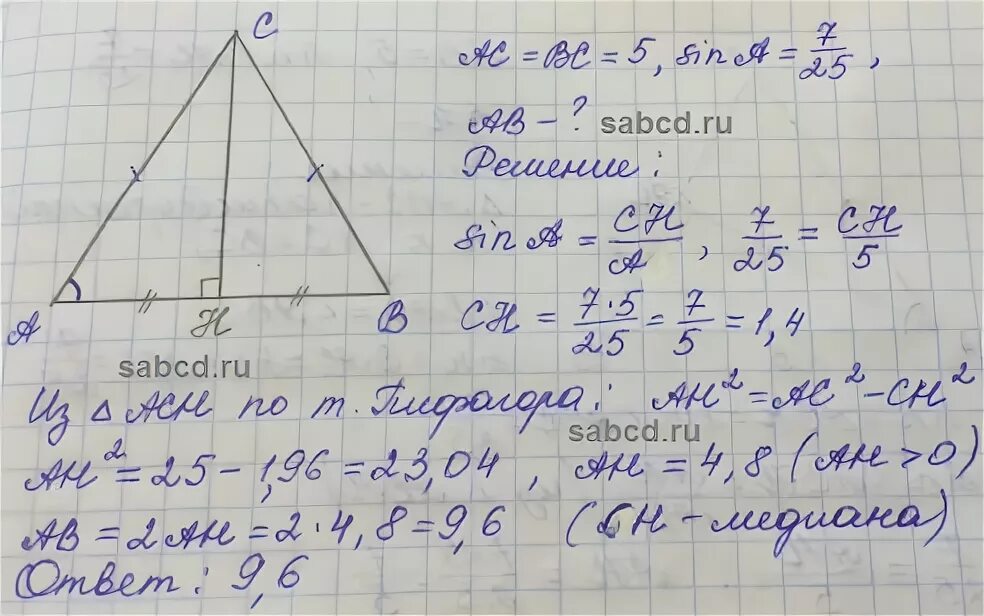 C
AC = BC = 5, sin A = 7/25,
AB - ? sabcd.ru
Решение:
sin A = CH/A, 7/25 = CH/5
A H B CH = 7·5/25 = 7/5 = 1,4
sabcd.ru
Из △ ACH по т. Пифагора: AH² = AC² - CH²
sabcd.ru
AH² = 25 - 1,96 = 23,04, AH = 4,8 (AH > 0)
AB = 2AH = 2·4,8 = 9,6 (CH - медиана)
Ответ: 9,6